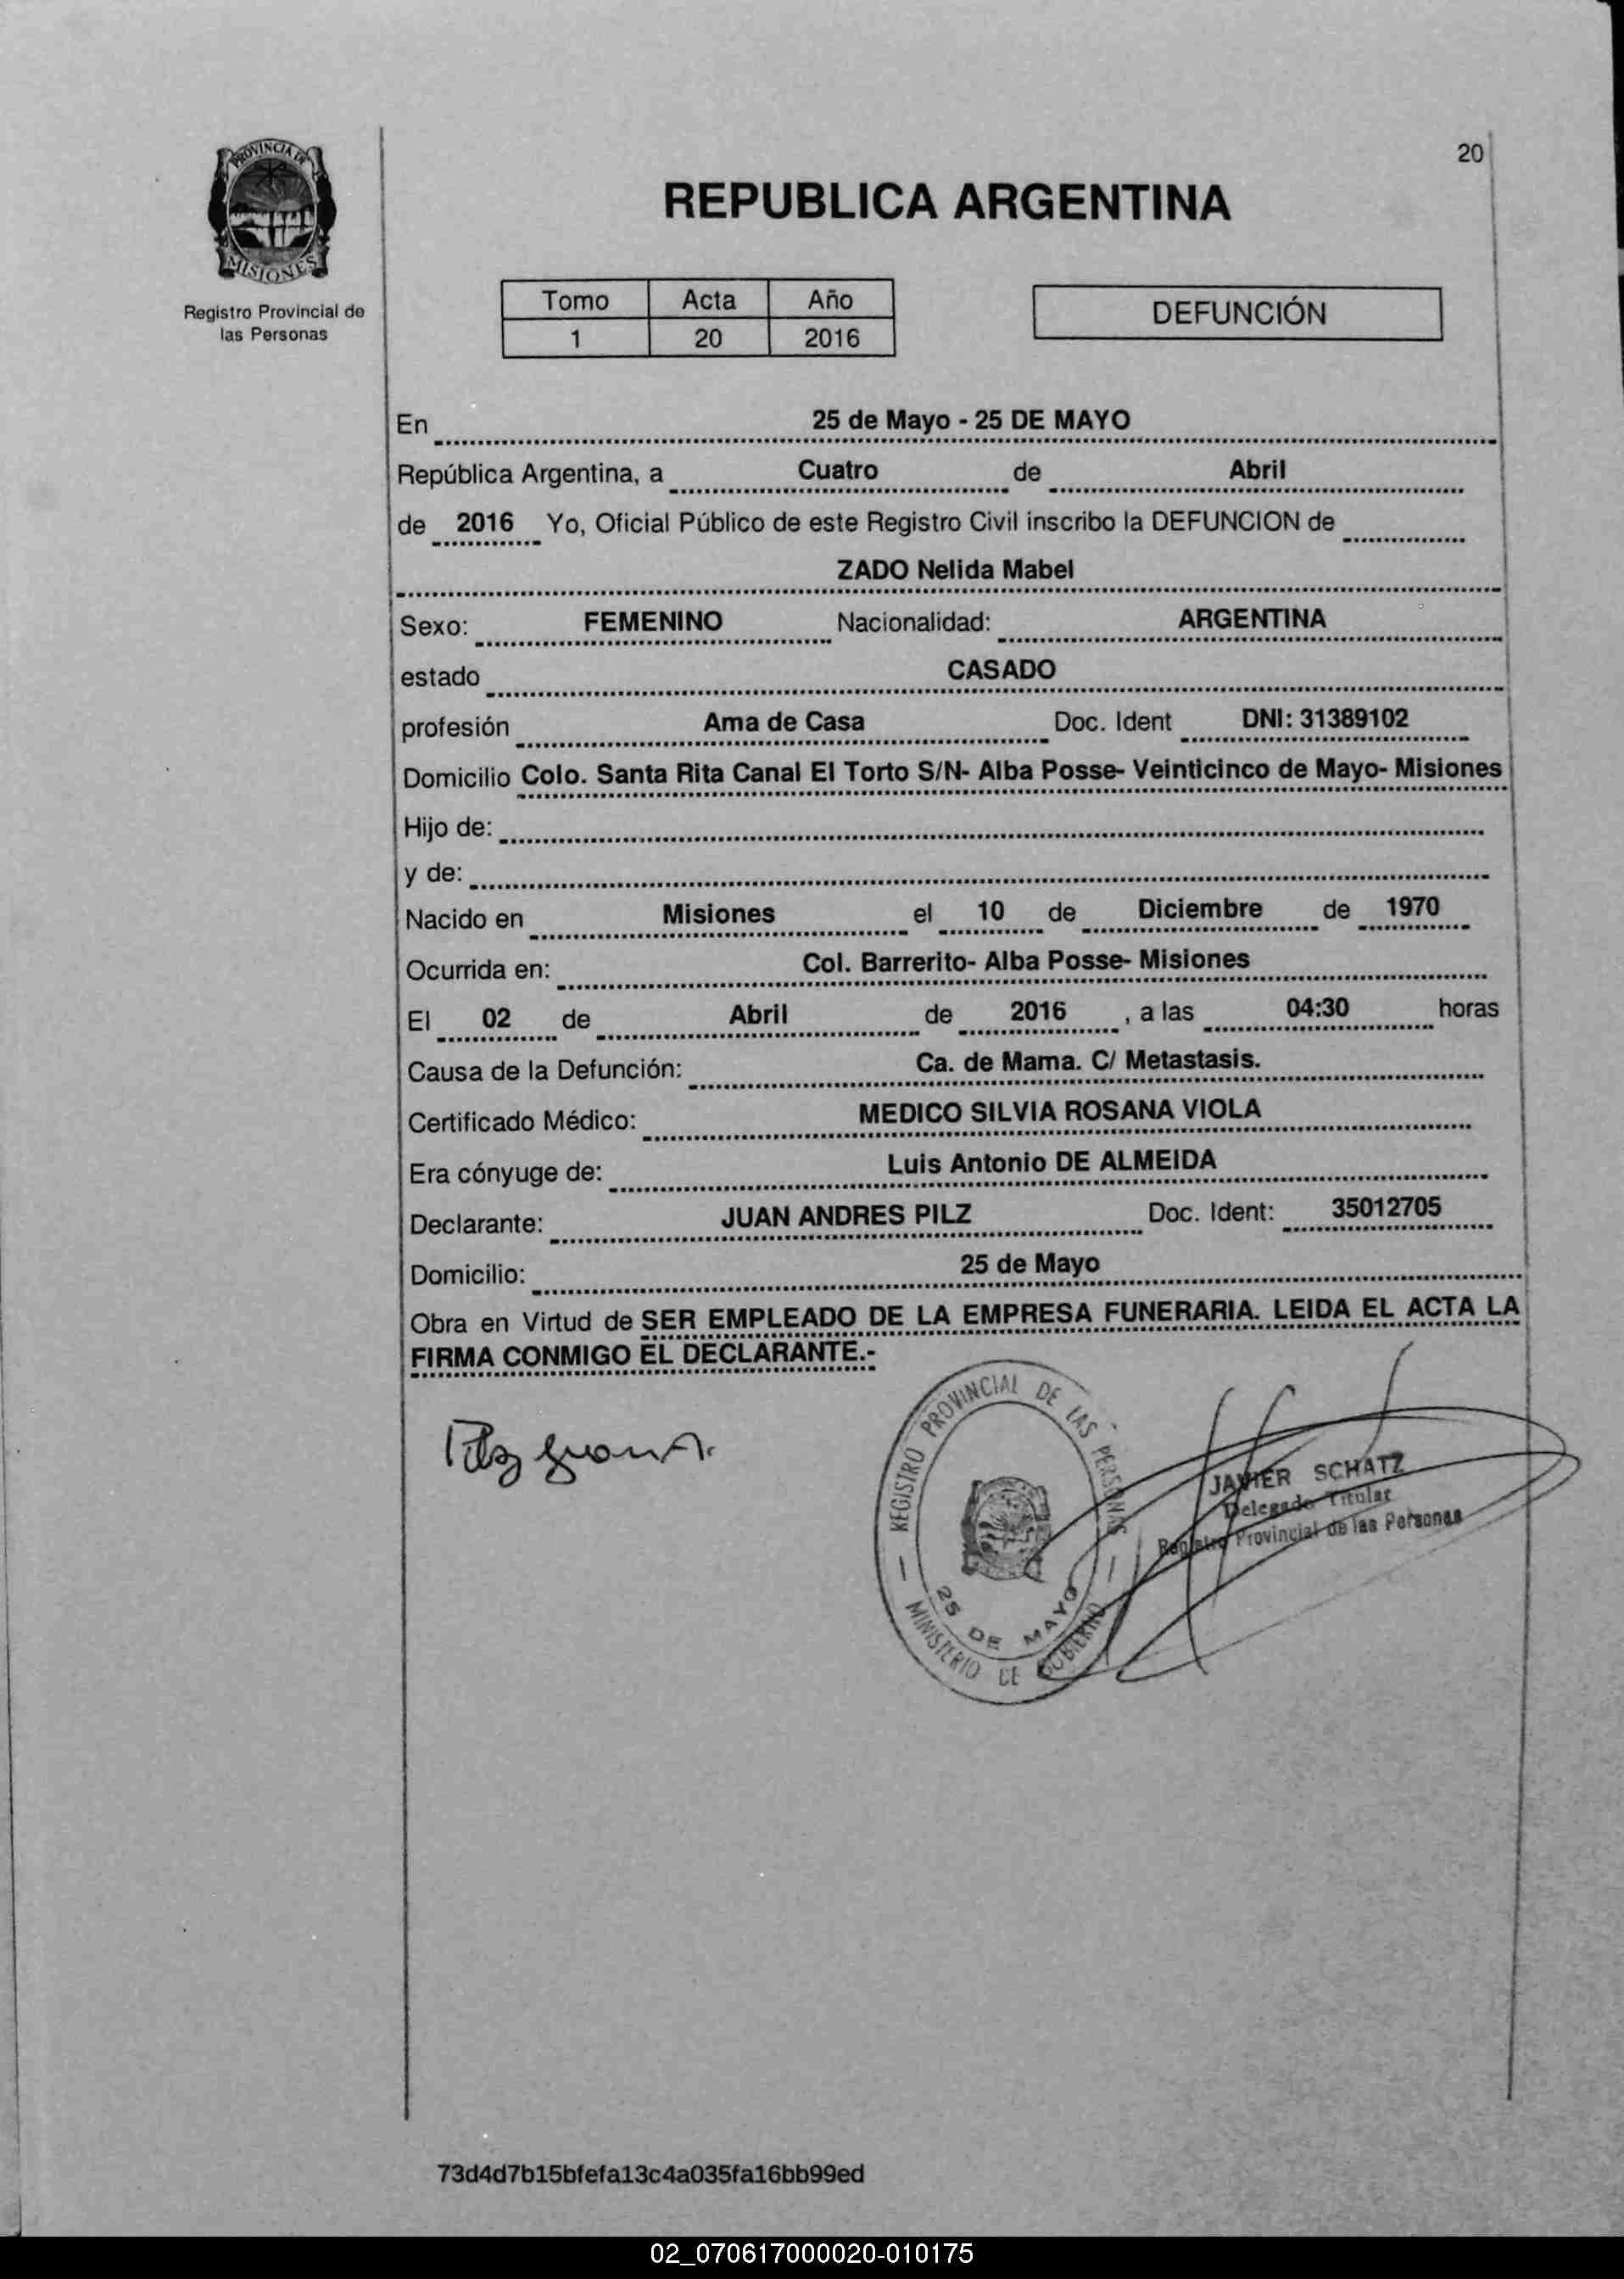 20
PROVINCIA DE
MISIONES
Registro Provincial de
las Personas
REPUBLICA ARGENTINA
Tomo Acta Año
1 20 2016
DEFUNCIÓN
En 25 de Mayo - 25 DE MAYO
República Argentina, a Cuatro de Abril
de 2016 Yo, Oficial Público de este Registro Civil inscribo la DEFUNCION de
ZADO Nelida Mabel
Sexo: FEMENINO Nacionalidad: ARGENTINA
estado CASADO
profesión Ama de Casa Doc. Ident DNI: 31389102
Domicilio Colo. Santa Rita Canal El Torto S/N- Alba Posse- Veinticinco de Mayo- Misiones
Hijo de:
y de:
Nacido en Misiones el 10 de Diciembre de 1970
Ocurrida en: Col. Barrerito- Alba Posse- Misiones
El 02 de Abril de 2016 , a las 04:30 horas
Causa de la Defunción: Ca. de Mama. C/ Metastasis.
Certificado Médico: MEDICO SILVIA ROSANA VIOLA
Era cónyuge de: Luis Antonio DE ALMEIDA
Declarante: JUAN ANDRES PILZ Doc. Ident: 35012705
Domicilio: 25 de Mayo
Obra en Virtud de SER EMPLEADO DE LA EMPRESA FUNERARIA. LEIDA EL ACTA LA
FIRMA CONMIGO EL DECLARANTE.-
Pilz Juan A.
REGISTRO PROVINCIAL DE LAS PERSONAS
25 DE MAYO
MINISTERIO DE GOBIERNO
JAVIER SCHATZ
Delegado Titular
Registro Provincial de las Personas
73d4d7b15bfefa13c4a035fa16bb99ed
02_070617000020-010175